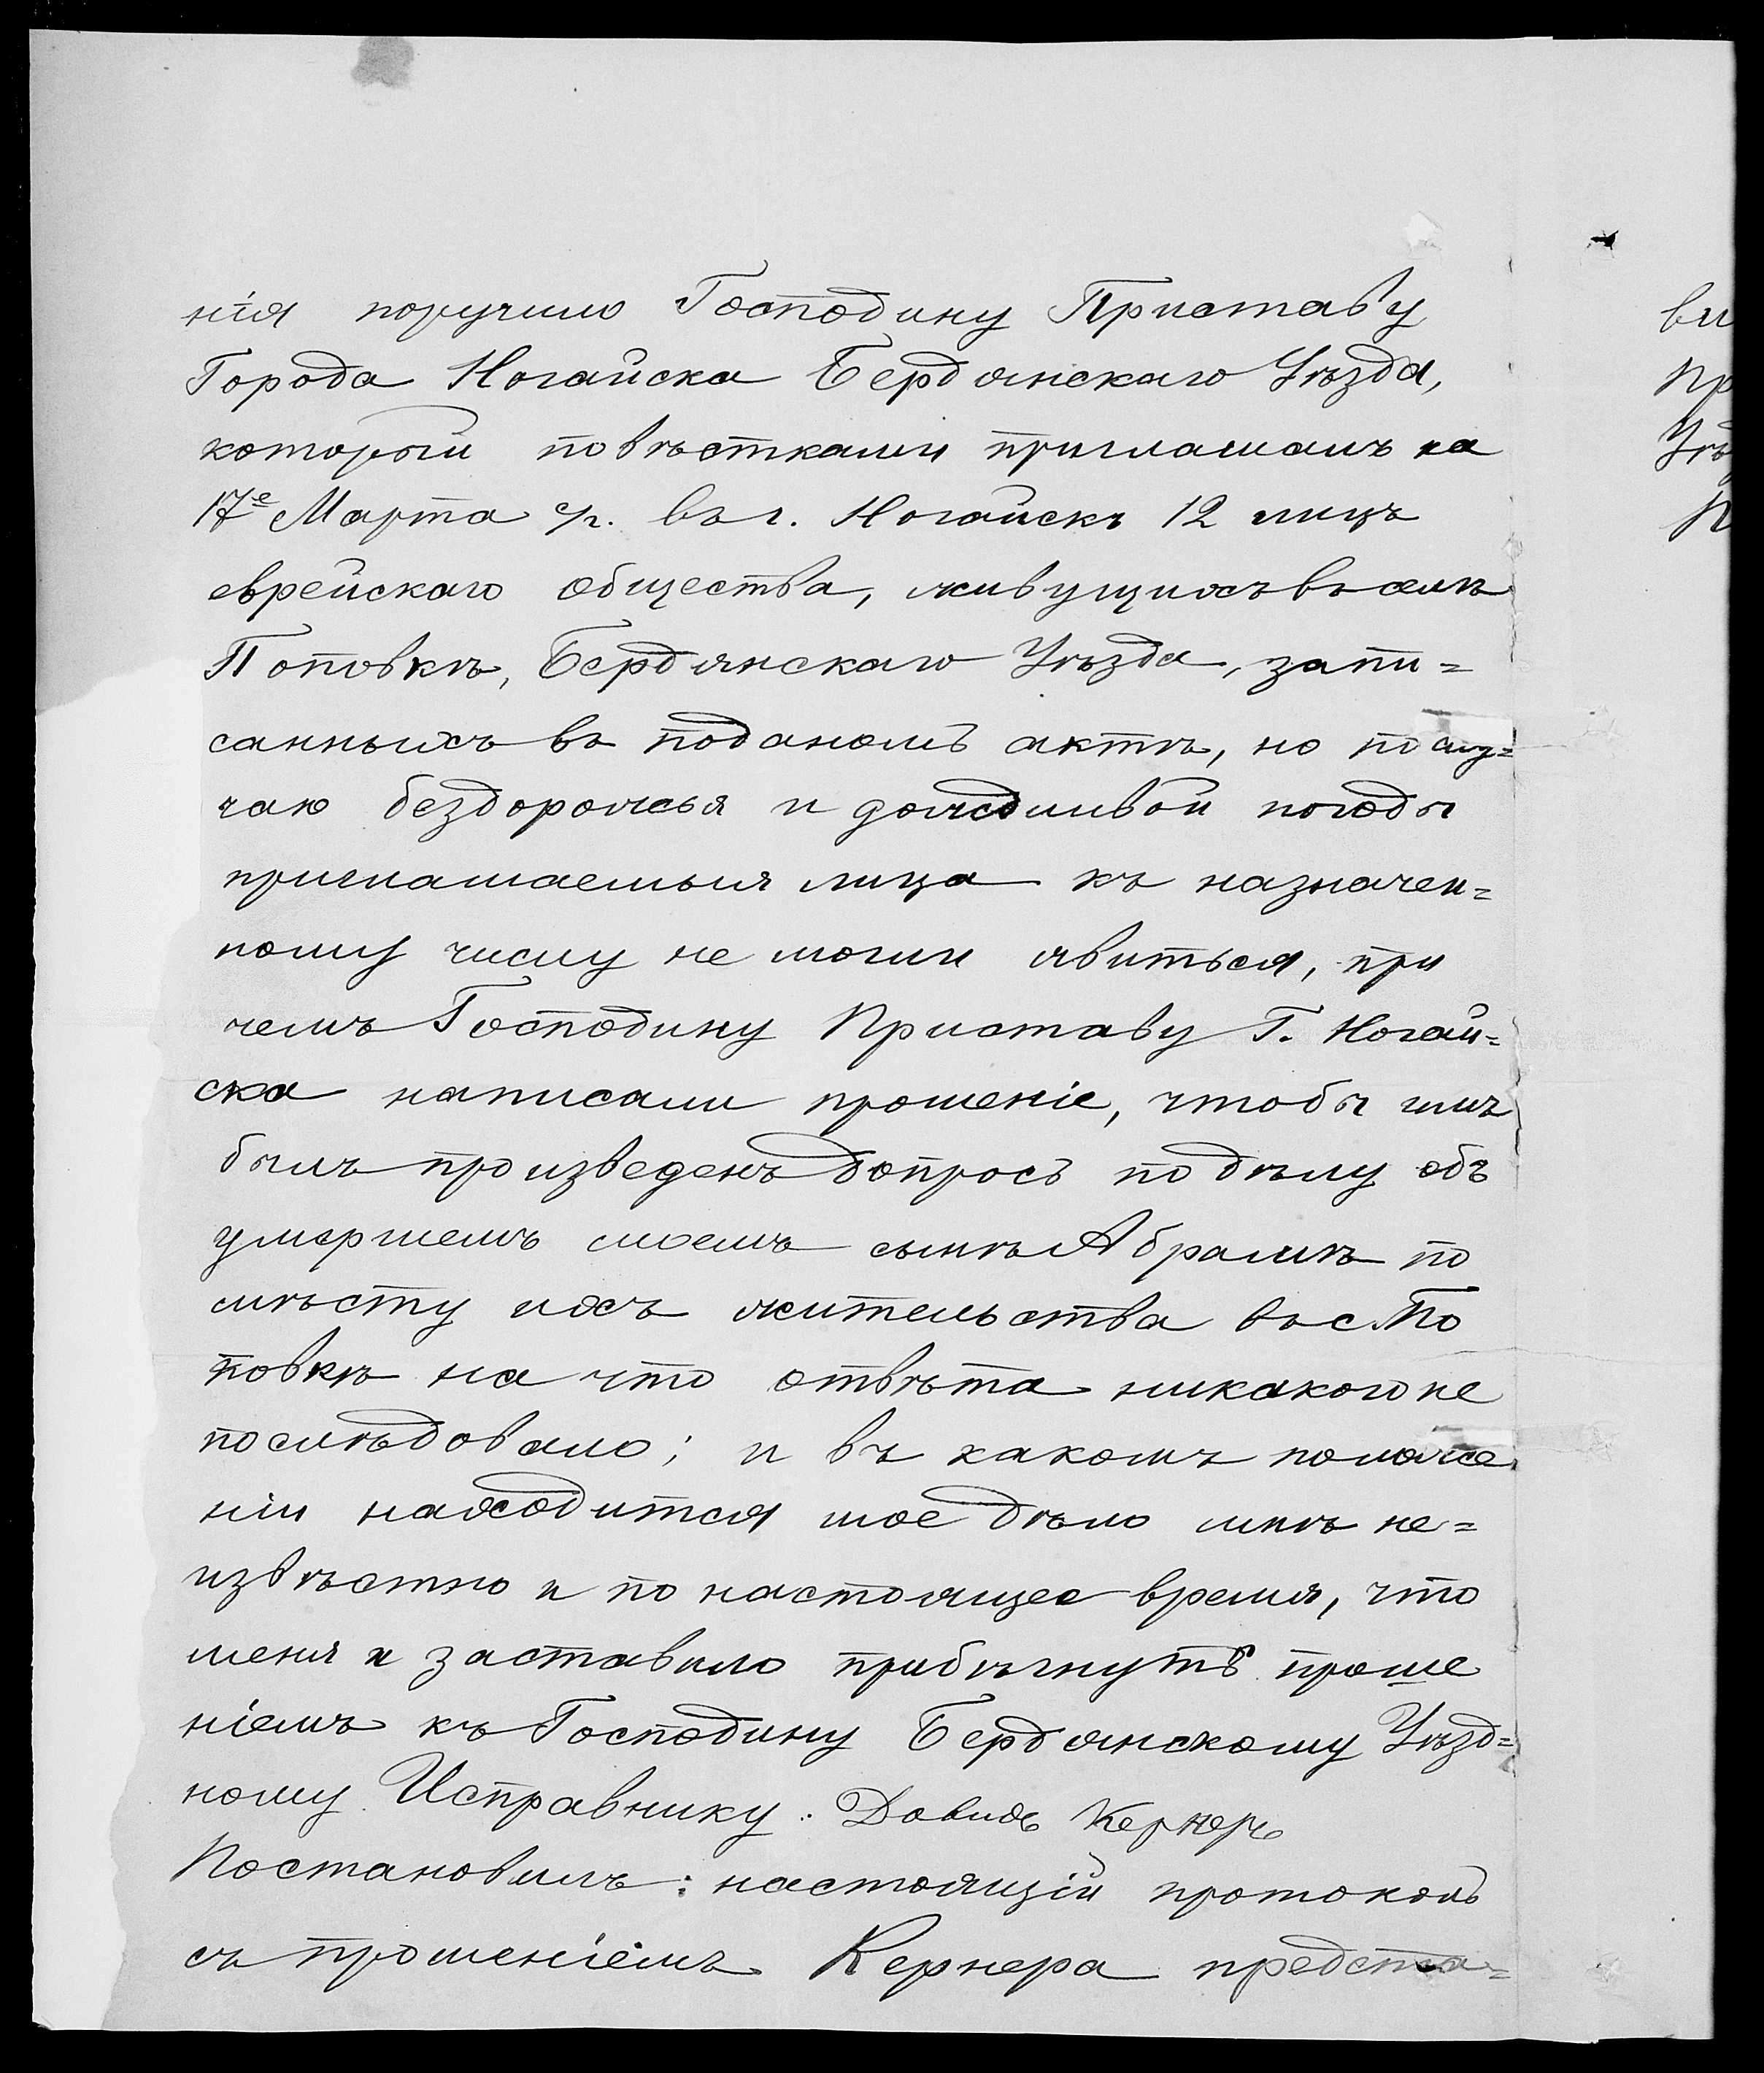 нія поручило Господину Приставу
Города Ногайска Бердянскаго Уѣзда,
который повѣстками приглашалъ на
17е Марта с/г. въ г. Ногайскъ 12 лицъ
еврейскаго общества, живущихъ въ селѣ
Поповкѣ, Бердянскаго Уѣзда, запи=
санныхъ въ поданомъ актѣ, но по слу=
чаю бездорожья и дождливой погоды
приглашаемыя лица къ назначен=
ному числу не могли явиться, при
чемъ Господину Приставу Г. Ногай=
ска написали прошеніе, чтобы имъ
былъ произведенъ допросъ по дѣлу объ
умершемъ моемъ сынѣ Абрамѣ по
мѣсту ихъ жительства въ с. По
повкѣ на что отвѣта никакого не
послѣдовало; и въ какомъ положе
ніи находится мое дѣло мнѣ не=
извѣстно и по настоящее время, что
меня и заставило прибѣгнуть проше
ніемъ къ Господину Бердянскому Уѣзд=
ному Исправнику. Давидъ Кернеръ
Постановилъ: настоящій протоколъ
съ прошеніемъ Кернера предста=
ви
пр
Уѣ
П